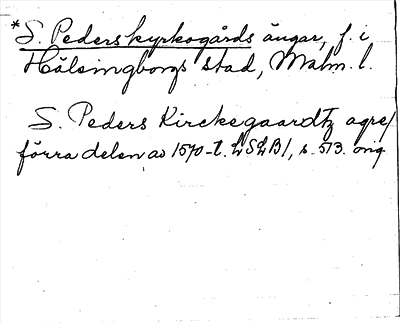 *S. Peders kyrkogårds ängar, f. i
Hälsingborgs stad, Malm. l.
S. Peders Kirckegaardtz agre/
förra delen av 1570-t. LSLB/, s. 513. orig